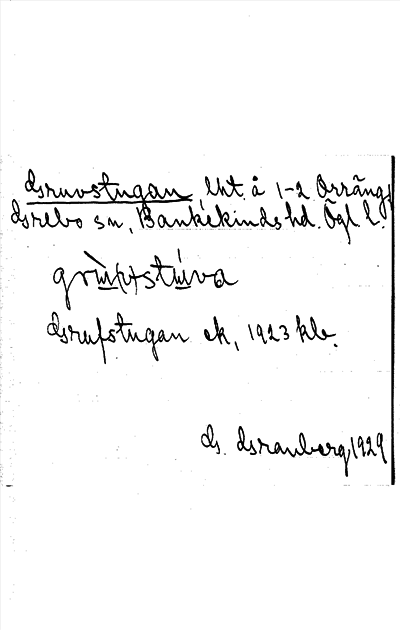 Gruvstugan, lht å 1-2 Orräng,
Grebo sn, Bankekinds hd. Ögl l.
grù(f)stúva
Grufstugan ek, 1923 kb.
G. Granberg 1929